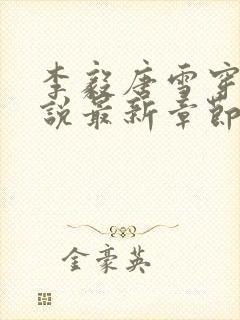 李毅唐雪穿
说最新章节
金豪英